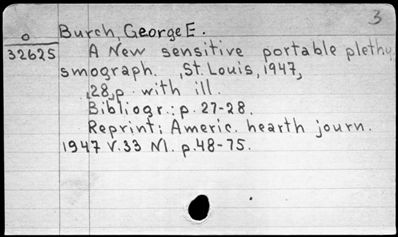 3
o Burch, George E.
32625 A New sensitive portable plethy
smograph. ,St. Louis, 1947,
,28,p. with ill.
Bibliogr.: p. 27-28.
Reprint: Americ. hearth journ.
1947 V.33 N1. p.48-75.